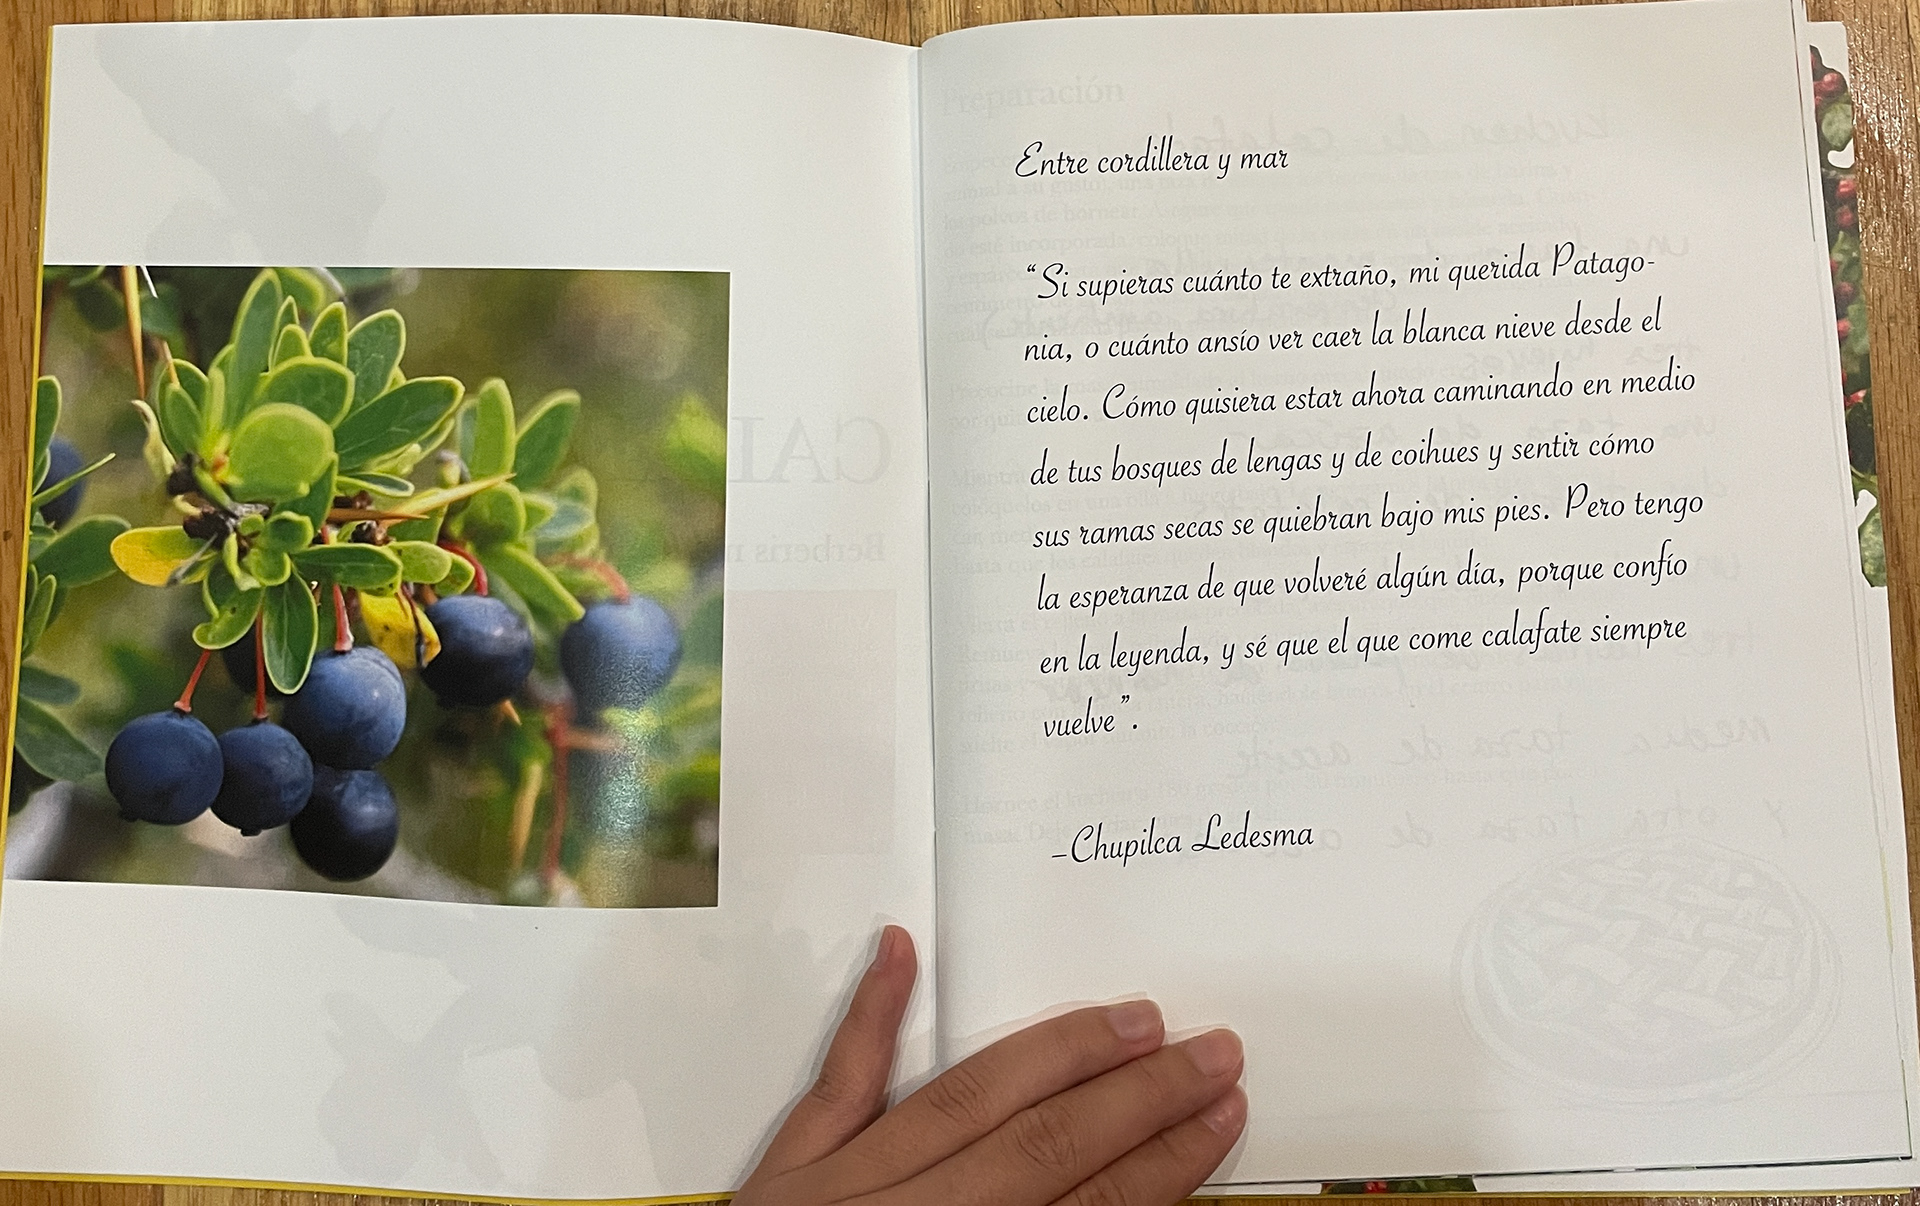 Entre cordillera y mar
“Si supieras cuánto te extraño, mi querida Patago-
nia, o cuánto ansío ver caer la blanca nieve desde el
cielo. Cómo quisiera estar ahora caminando en medio
de tus bosques de lengas y de coihues y sentir cómo
sus ramas secas se quiebran bajo mis pies. Pero tengo
la esperanza de que volveré algún día, porque confío
en la leyenda, y sé que el que come calafate siempre
vuelve”.
–Chupilca Ledesma